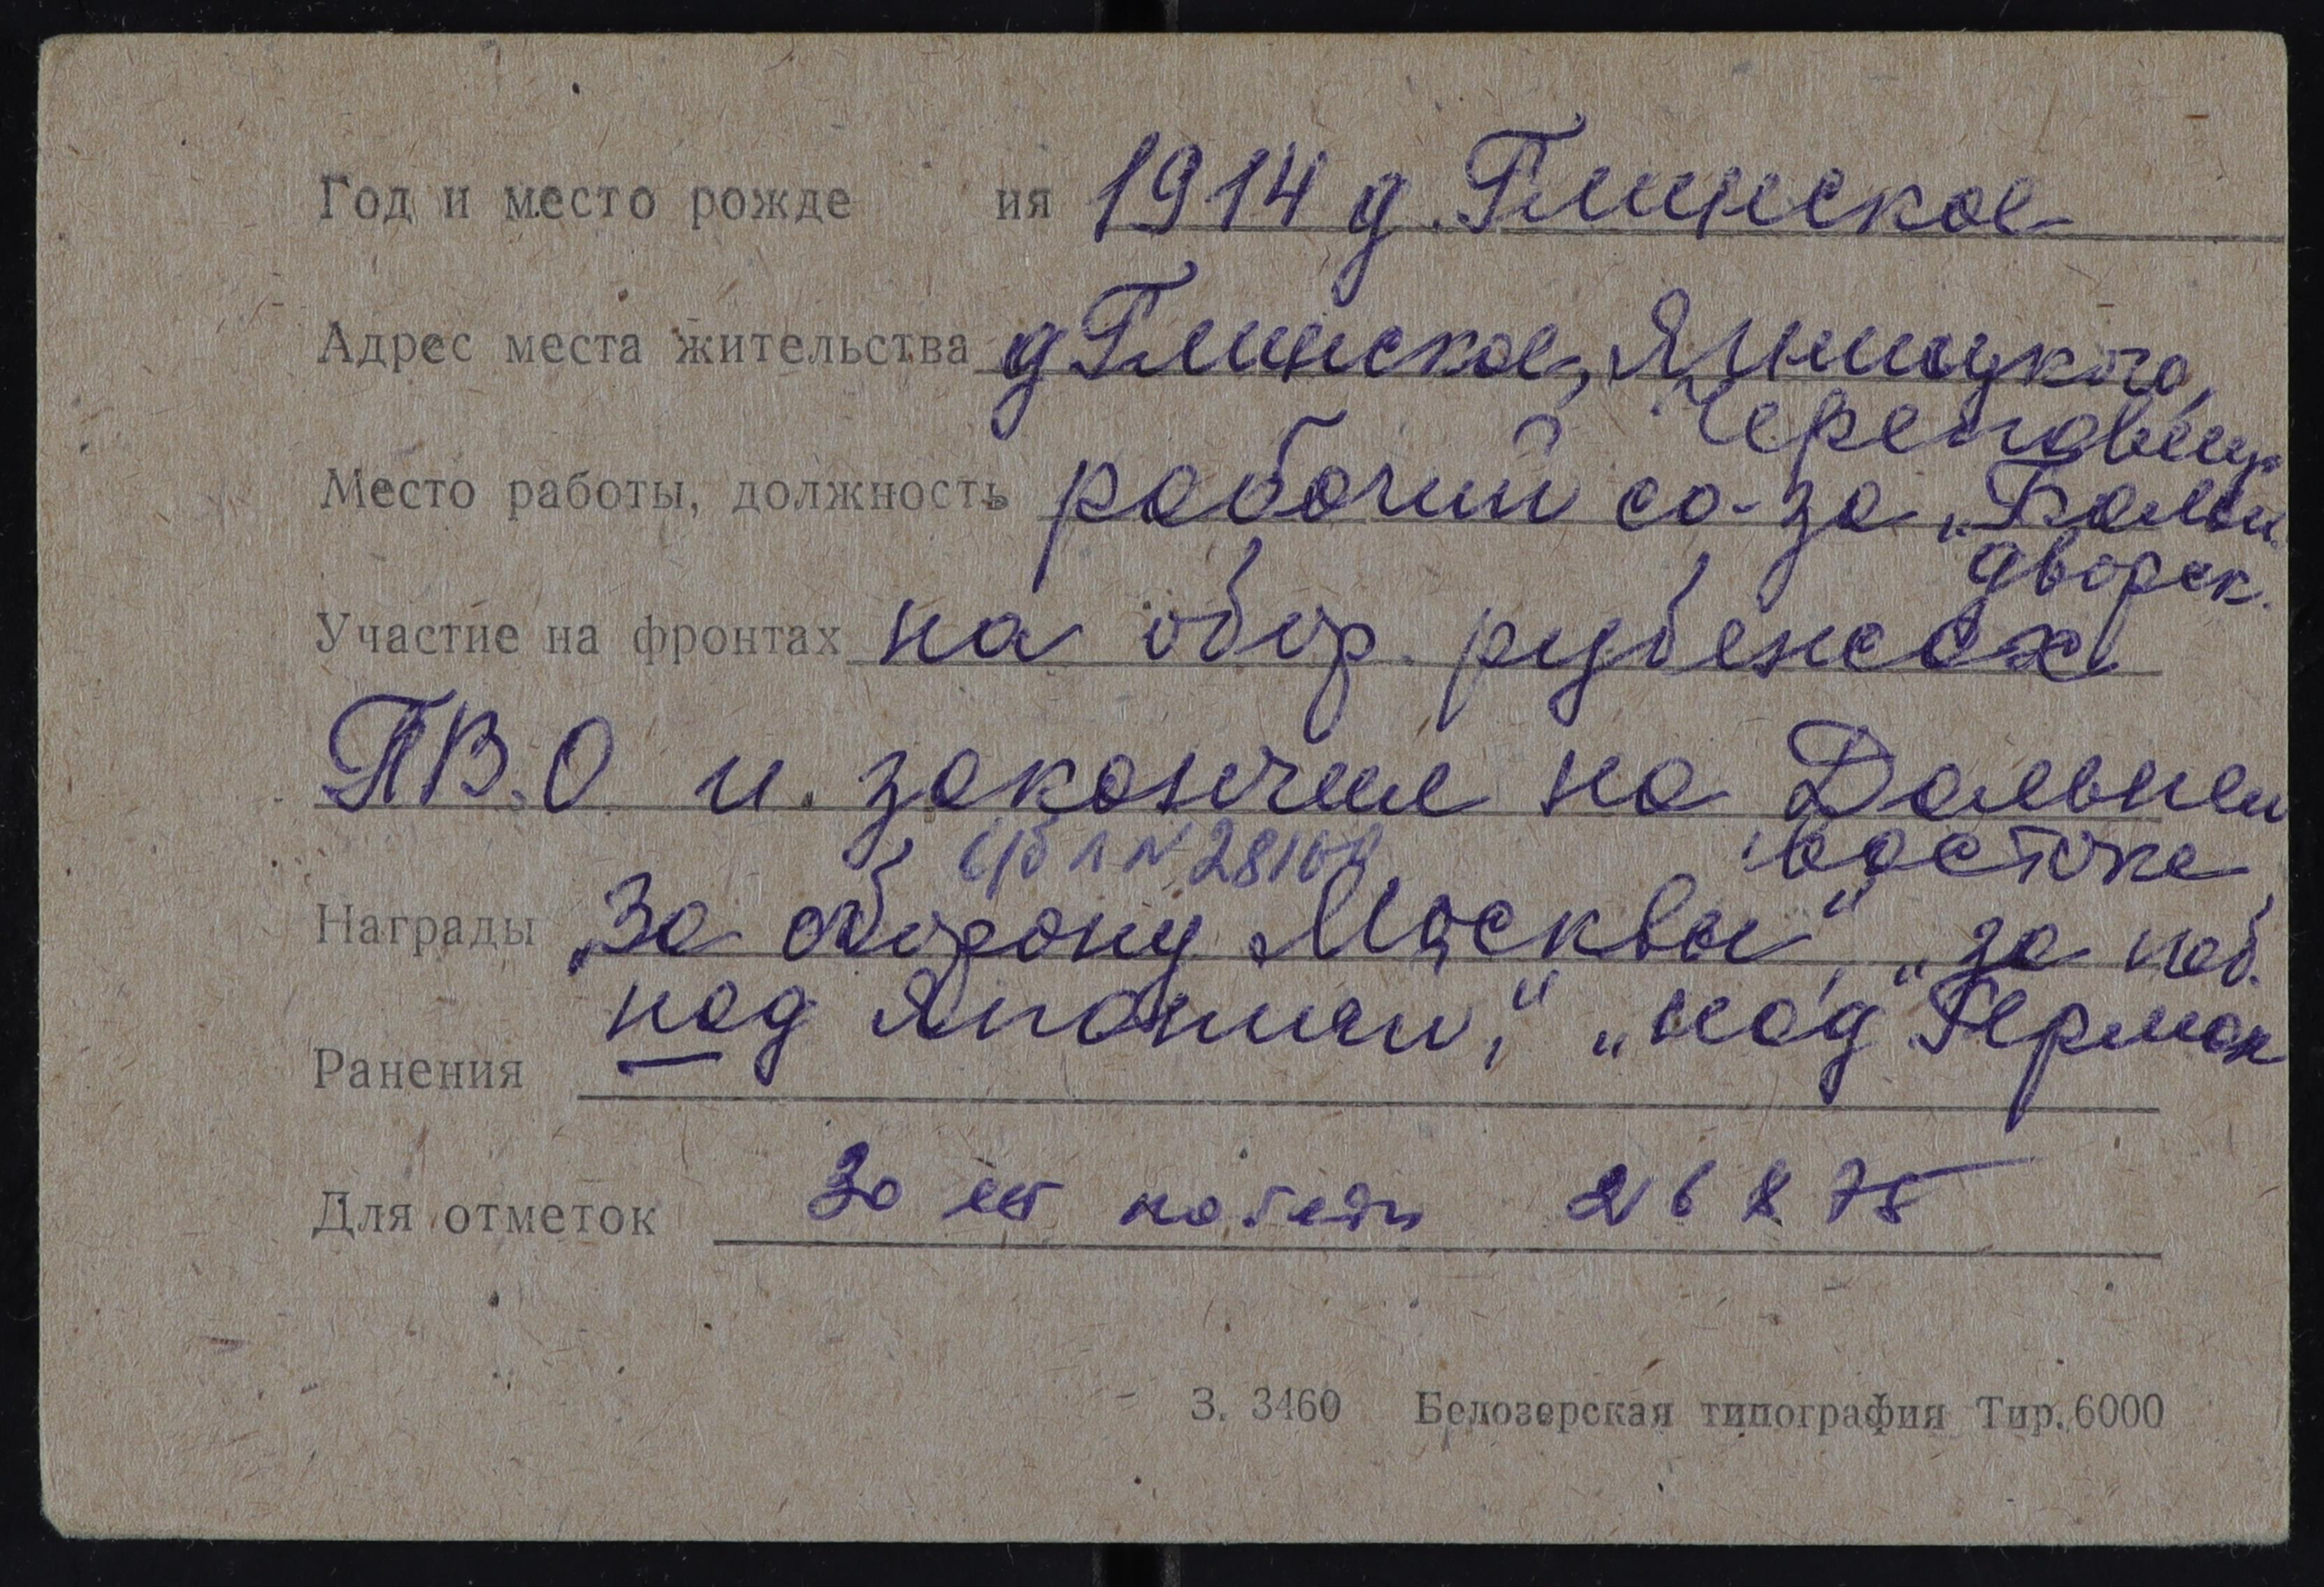 Год и место рожде ия 1914 д. Глинское
Адрес места жительства д Глинское, Яницкого,
Череповец.
Место работы, должность рабочий со-за „Больш.
дворск.
Участие на фронтах на обор. рубежах
ПВ.О и. закончил на Дальнем
востоке
Награды „За оборону Москвы“, „за поб.
над Японией,“ „над Герман
Ранения
Для отметок 30 лет победы 26 X 75
З. 3460 Белозерская типография Тир. 6000